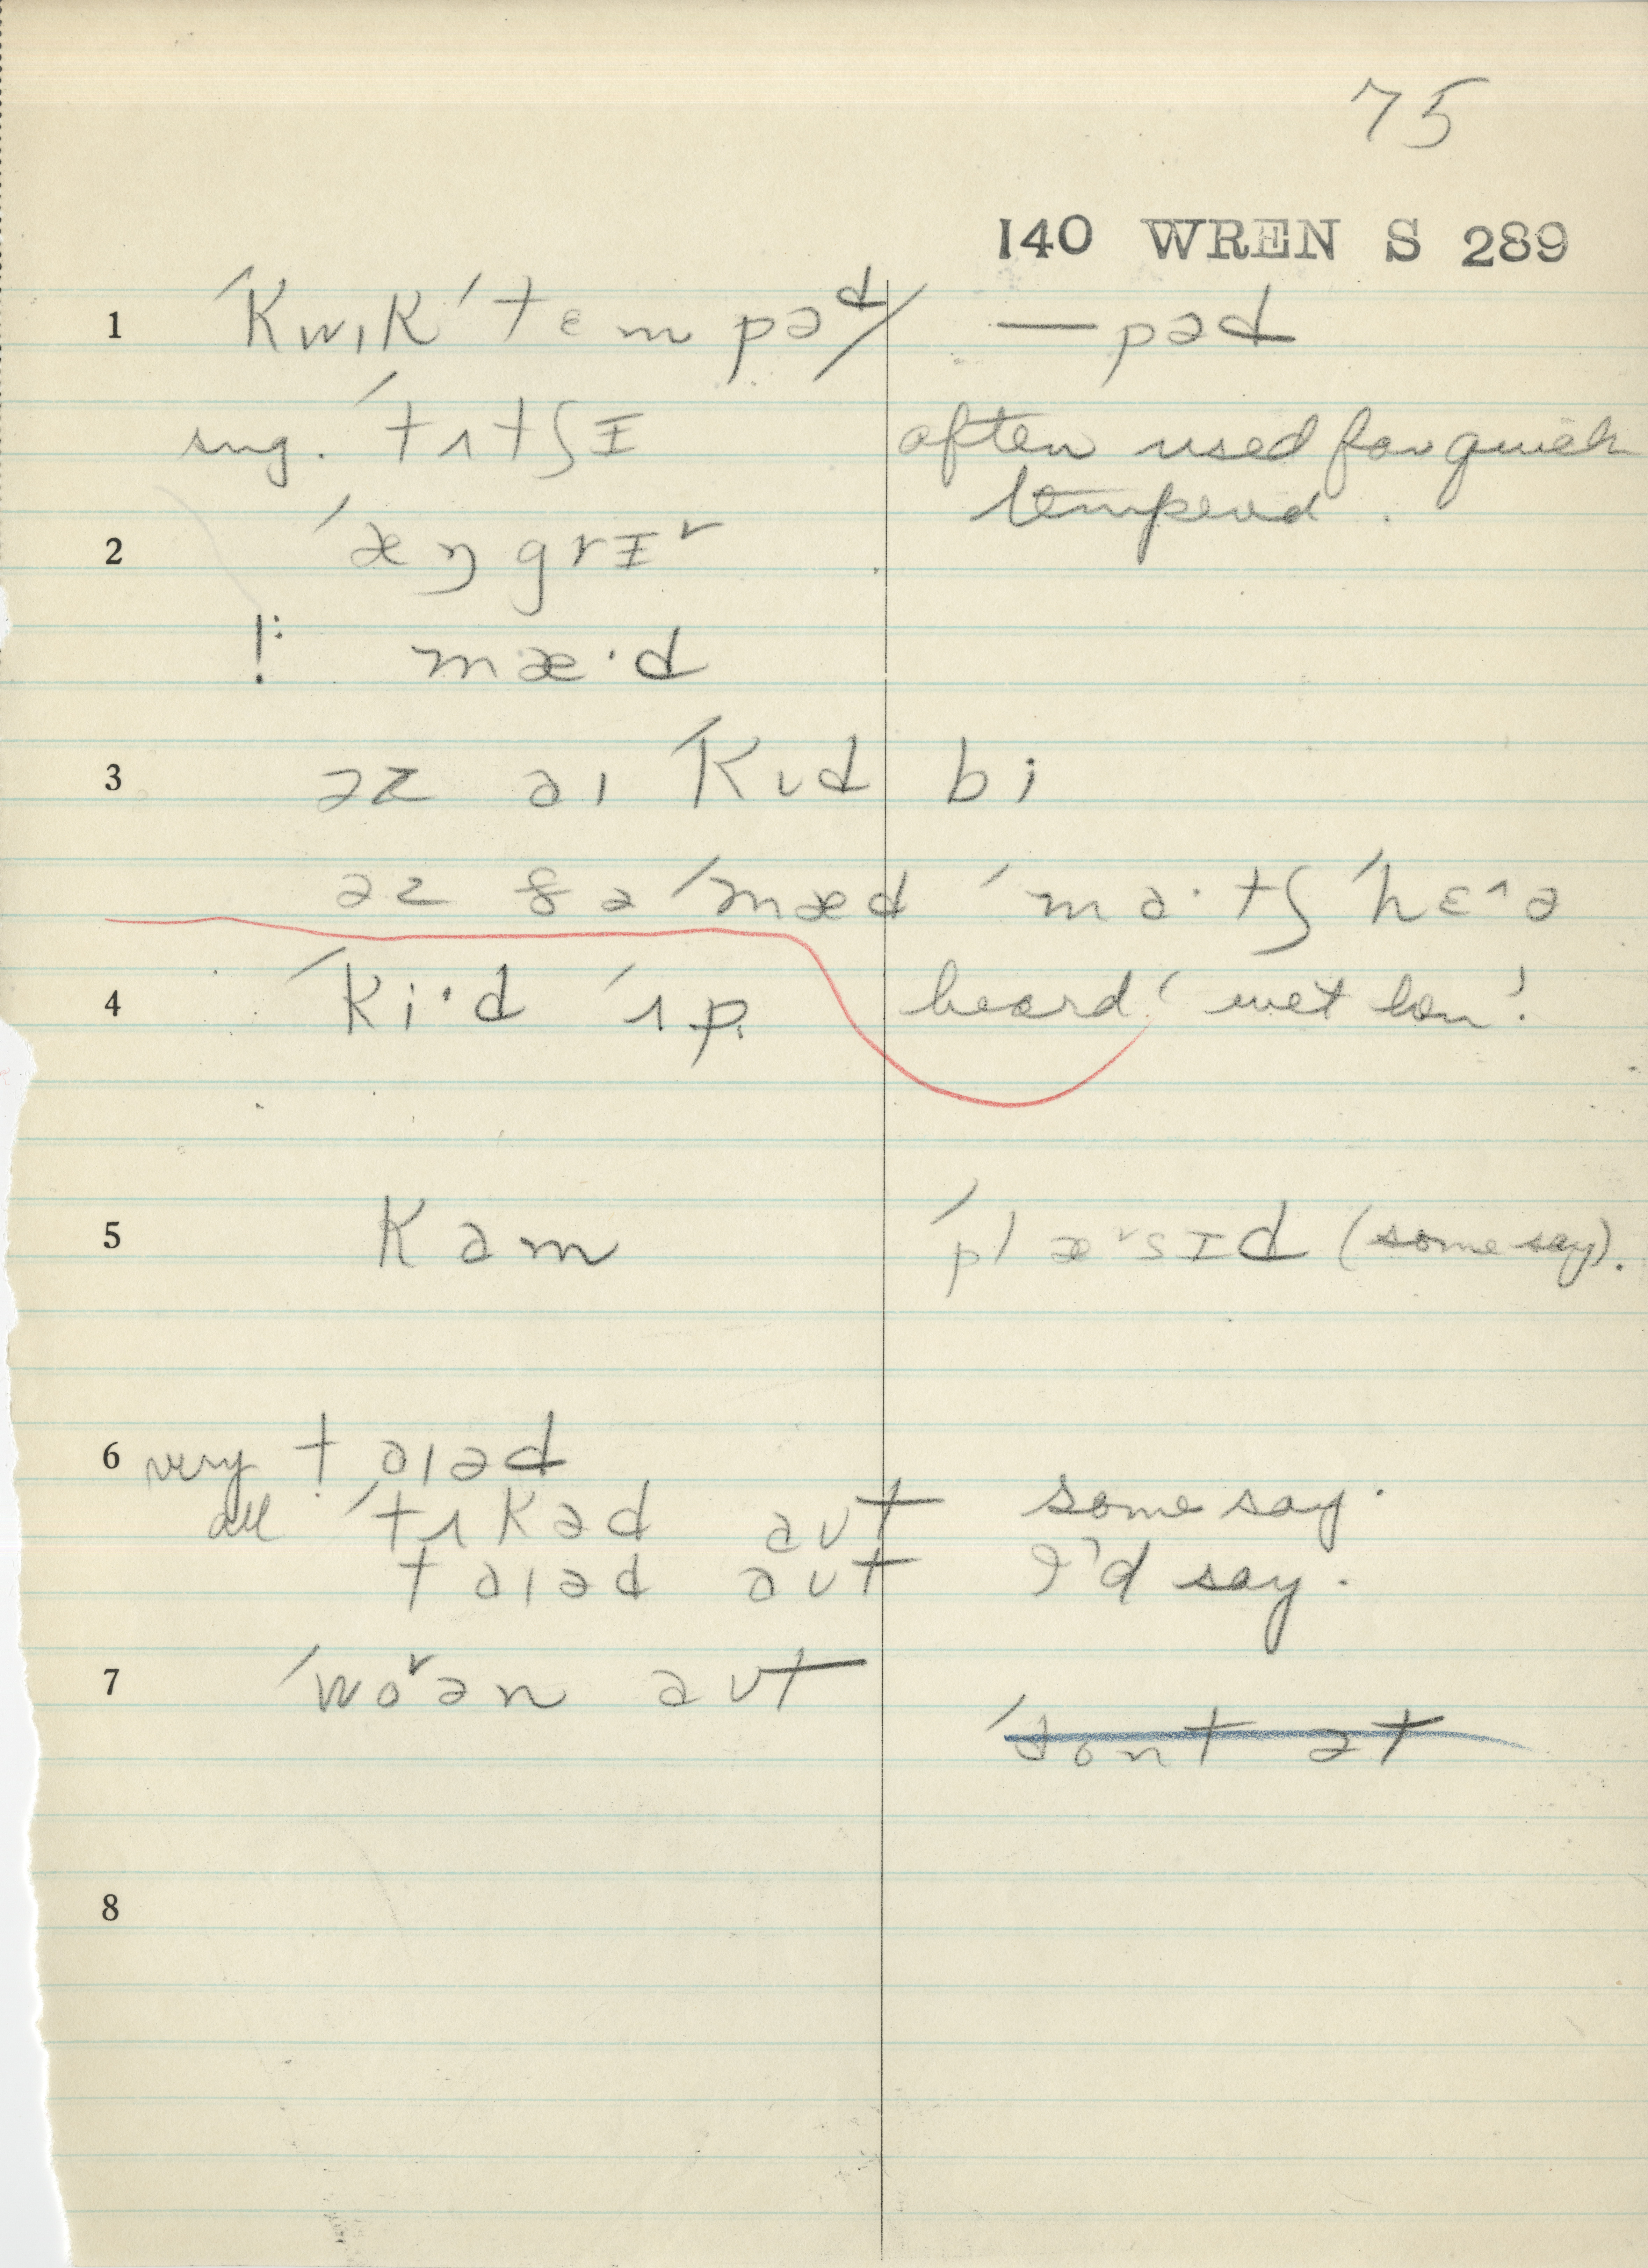 75
140 WREN S 289
1 ˈkwɪkˈtɛmpəd/ — pəd
sug. ˈtʌtʃɪ often used for quick
tempered.
2 ˈæŋgrɪ˅
!: mæ·d
3 əz aɪ ˈkʊd bi
əz ə ˈmæd ˈma·tʃ ˈhɛ^ə
4 ˈki·d ˈʌp heard ' wet hen'
5 kam ˈplæ˅sɪd (some say).
6 very taɪəd
all ˈtʌkəd aʊt some say.
taɪəd aʊt I'd say.
7 ˈwo˅ən aʊt
ət
8